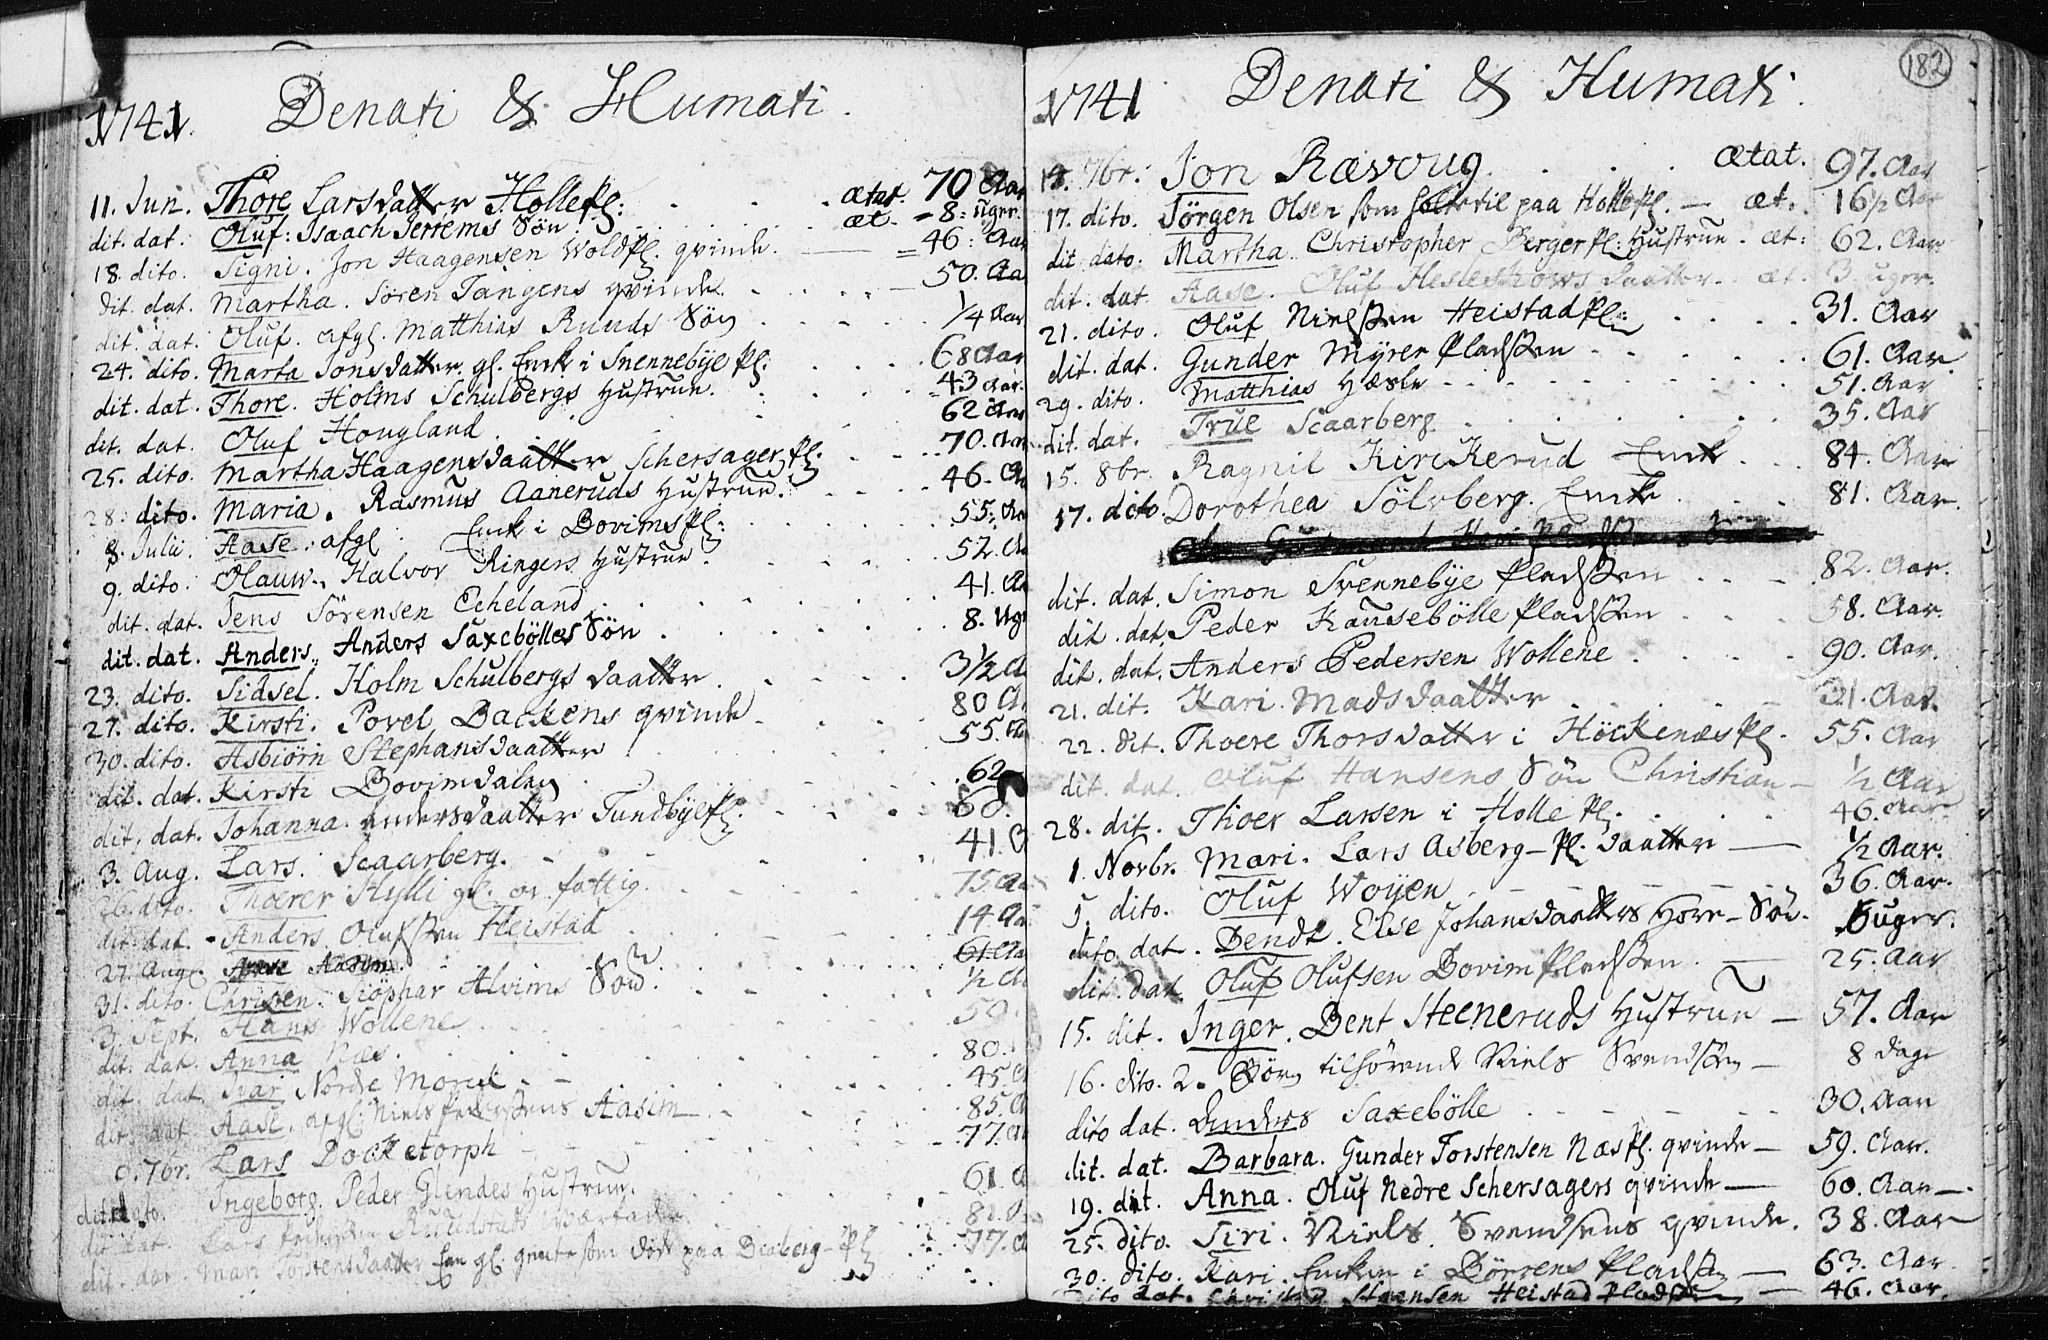 1741. Denati & Humati.
11. Jun. Thore Larsdatter Holle Pl: ætat. 70 Aar
dit. dat. Oluf: Isaach Serrems Søn. æt. - 8 = uger.
18. dito. Signi. Jon Haagensen Woldpl. qvinde. = 46: Aar
dit. dat. Martha. Søren Tangens qvinde. 50. Aar
dit. dat. Oluf. afgl. Matthias Ruuds Søn 1/4 Aar
24. dito. Marta Jonsdatter. gl. Enke i Svennebÿe Pl: 68 Aar
dit. dat. Thore. Holms Schulbergs Hustrue. 43 Aar.
dit. dat. Oluf Hougland. 62 Aar
25. dito. Martha Haagensdaatter Schersager Pl. 70. Aar
28. dito. Maria. Rasmus Aaneruds Hustrue. 46. Aa
8. Julii. Aase. afgl. Enke i Bovims Pl: 55. Aa
9. dito. Olauw. Halvor Ringers Hustrue. 52. Aa
dit. dat. Jens Sörensen Echeland. 41. Aa
dit. dat. Anders. Anders Saxebölles Søn 8. Uge
23. dito. Sidsel. Holm Schulbergs daatter. 3 1/2 Aa
27. dito. Kirsti. Povel Backens qvinde. 80 A
30. dito. Asbiörn Stephansdaatter 55. Aa
dit. dat. Kirsti Bovimdalen 62
dit. dat. Johanna Andersdaatter Tundbÿe Pl.
3. Aug. Lars. Scaarberg. 41.
26. dito. Thorer Hylli gl. og fattig. 75. Aa
dit. dat. Anders Olufsen Heistad 14 Aa
27. Aug. Aasim. 61 Aa
31. dito. Christen. Siöphar Alvims Søn. 1/2 Aa
3. Sept. Hans Wollene 50.
dit. dat. Anna Næs. 80.
dit. dat. Kari Nordre Moren 45.
dit. dat. Aase. afgl. Niels Pedersens Aasim 85. A
7br. Lars Docketorph 77. A
dito. Ingeborg. Peder Glendes Hustrue. 61. A
dit. dat. Lars 81.
dit. dat. Mari Torstensdaatter En gl. som döde paa Biaberg-Pl 77. A
182
1741 Denati & Humati.
14. 7br. Jon Rævoug. ætat. 97. Aar
17. dito. Jörgen Olsen som holt til paa Holle Pl. - æt. 16 1/2 Aar
dit. dato. Martha Christopher Berger Pl: Hustrue. æt: 62. Aar
dit. dat. Aase. Oluf Hesleskows daatter. æt. 3 uger.
21. dito. Oluf Nielsen Heistad Pl: 31. Aar
dit. dat. Gunder Mÿrer Pladsen 61. Aar
29. dito. Matthias Hæsle 51. Aar
dit. dat. True Scaarberg. 35. Aar
15. 8br. Ragnil Kirckerud Enke 84. Aar
17. dito. Dorothea Sölvberg. Enke 81. Aar.
dit. dat. Simon Svennebÿe Pladsen 82. Aar.
dit. dat. Peder Kausebölle Pladsen 58. Aar.
dit. dat. Anders Pedersen Wollene 90. Aar.
21. dit. Kari Madsdaatter 21. Aar.
22. dit. Thoere Thorsdatter i Höckenæs Pl. 55. Aar
dit. dat. Oluf Hansens Søn Christian 1/2 Aar
28. dit. Thoer Larsen i Holle Pl. 46. Aar
1. Novbr. Mari. Lars Asberg-Pl. daatter — 1/2 Aar.
5. dito. Oluf Woÿen 36. Aar.
dito dat. Bendt. Else Johansdaatters Hore-Søn. 6 uger.
dit. dat. Oluf Olufsen Bovim Pladsen. — 25. Aar
15. dit. Inger. Bent Steeneruds Hustrue — 57. Aar
16. dito. 2. Börn tilhörende Niels Svendsen — 8 Dage
dito dat. Anders Saxebölle 30. Aar
dit. dat. Barbara. Gunder Torstensen Næs Pl. qvinde — 59. Aar.
19. dit. Anna. Oluf Nedre Schersagers qvinde — 60. Aar —.
25. dito. Siri. Niels Svendsens qvinde. 38. Aar
30. dito. Kari. Enken i Börrens Pladsen — 63. Aar
dito dat. Heistad Pladsen — 46. Aar.